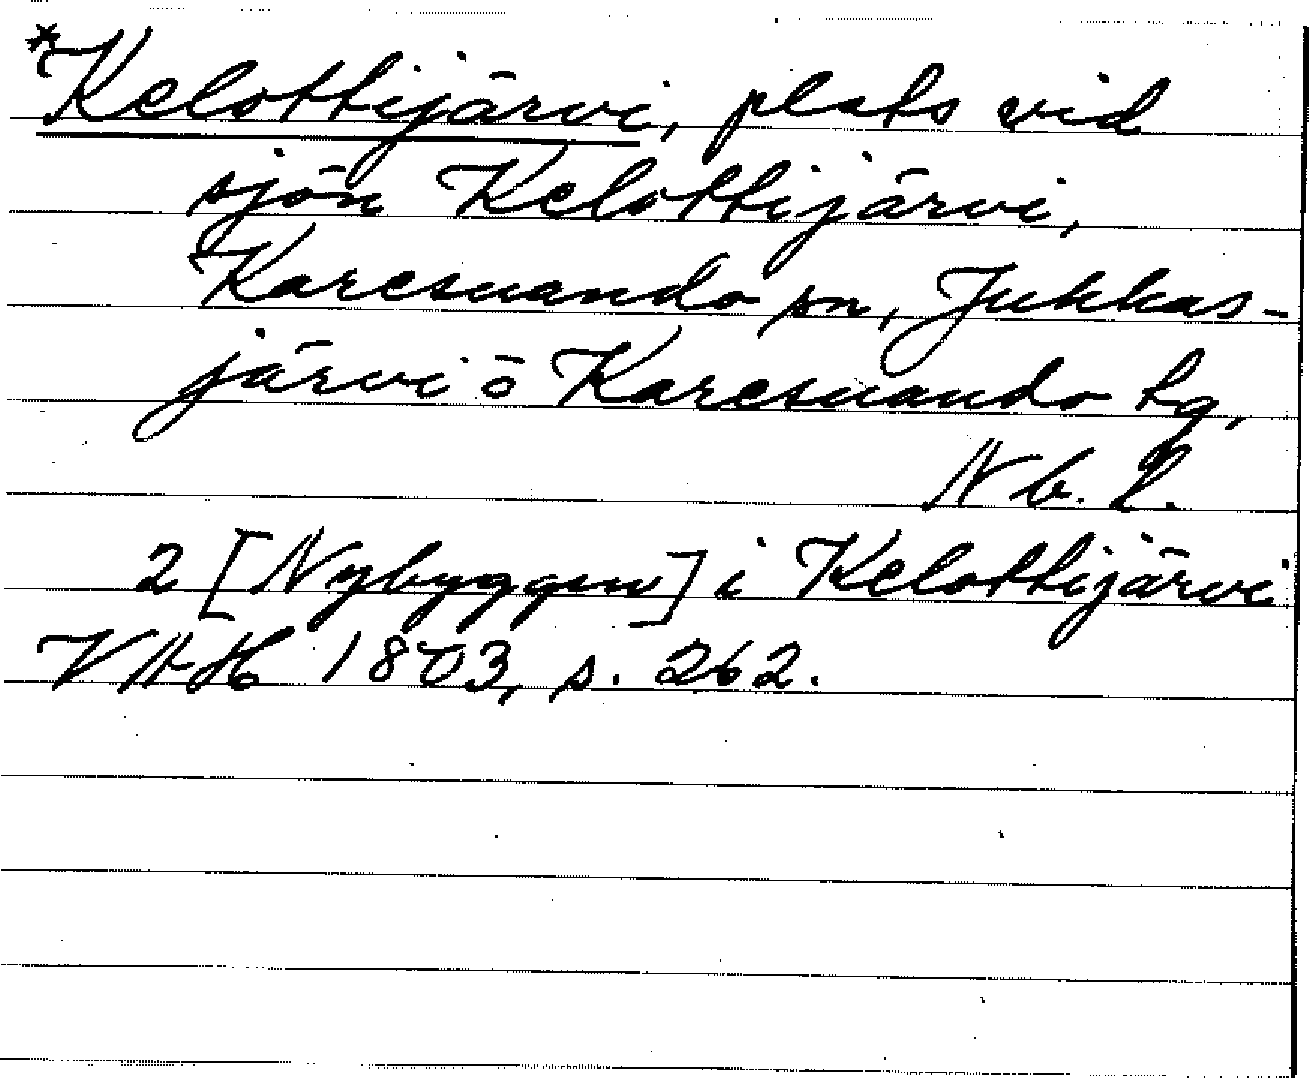 *Kelottijärvi, plats vid
sjön Kelottijärvi,
Karesuando sn, Jukkas-
järvi o Karesuando tg,
Nb. l.
2 [Nybyggen] i Kelottijärvi
VAH 1803, s. 262.